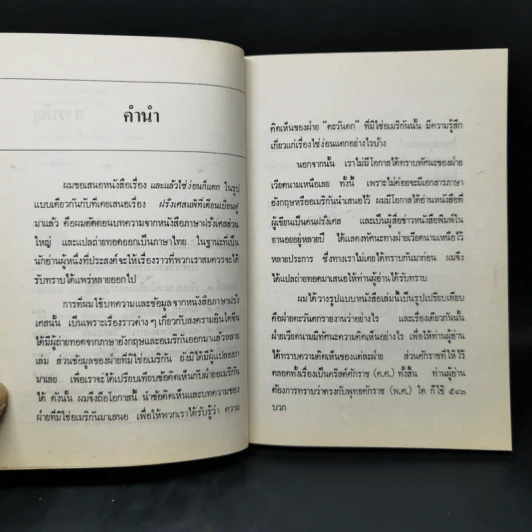 คำนำ
ผมขอเสนอหนังสือเรื่อง และแล้วไซ่ง่อนก็แตก ในรูป
แบบเดียวกันกับที่เคยเสนอเรื่อง ฝรั่งเศสแพ้ที่เดียนเบียนฟู
มาแล้ว คือผมคัดตอนบทความจากหนังสือภาษาฝรั่งเศสส่วน
ใหญ่ และแปลถ่ายทอดออกเป็นภาษาไทย ในฐานะที่เป็น
นักอ่านผู้หนึ่งที่ประสงค์จะให้เรื่องราวที่พวกเราสมควรจะได้
รับทราบได้แพร่หลายออกไป
การที่ผมใช้บทความและข้อมูลจากหนังสือภาษาฝรั่ง
เศสนั้น เป็นเพราะเรื่องราวต่างๆ เกี่ยวกับสงครามอินโดจีน
ได้มีผู้ถ่ายทอดจากภาษาอังกฤษและอเมริกันออกมาแล้วหลาย
เล่ม ส่วนข้อมูลของฝ่ายที่มิใช่อเมริกัน ยังมิได้มีผู้แปลออก
มาเลย เพื่อเราจะได้เปรียบเทียบข้อคิดเห็นกับฝ่ายอเมริกัน
ได้ ดังนั้น ผมจึงถือโอกาสนี้ นำข้อคิดเห็นและบทความของ
ฝ่ายที่มิใช่อเมริกันมาเสนอ เพื่อให้พวกเราได้รับรู้ว่า ความ
คิดเห็นของฝ่าย "ตะวันตก" ที่มิใช่อเมริกันนั้น มีความรู้สึก
เกี่ยวแก่เรื่องไซ่ง่อนแตกอย่างไรบ้าง
นอกจากนั้น เราไม่มีโอกาสได้ทราบทัศนะของฝ่าย
เวียดนามเหนือเลย ทั้งนี้ เพราะไม่ค่อยจะมีเอกสารภาษา
อังกฤษหรืออเมริกันนำเสนอไว้ ผมมีโอกาสได้อ่านหนังสือที่
ผู้เขียนเป็นคนฝรั่งเศส และเป็นผู้สื่อข่าวหนังสือพิมพ์ใน
ฮานอยอยู่หลายปี ได้แสดงทัศนะทางฝ่ายเวียดนามเหนือไว้
หลายประการ ซึ่งทางเราไม่เคยได้ทราบกันมาก่อน ผมจึง
ได้แปลถ่ายทอดมาเสนอให้ท่านผู้อ่านได้รับทราบ
ผมได้วางรูปแบบหนังสือเล่มนี้เป็นรูปเปรียบเทียบ
คือฝ่ายตะวันตกรายงานว่าอย่างไร และเรื่องเดียวกันนั้น
ฝ่ายเวียดนามมีทัศนะความคิดเห็นอย่างไร เพื่อให้ท่านผู้อ่าน
ได้ทราบความคิดเห็นของแต่ละฝ่าย ส่วนศักราชที่ให้ไว้
ตลอดทั้งเรื่องเป็นคริสต์ศักราช (ค.ศ.) ทั้งสิ้น ท่านผู้อ่าน
ต้องการทราบว่าตรงกับพุทธศักราช (พ.ศ.) ใด ก็ใช้ ๕๔๓
บวก